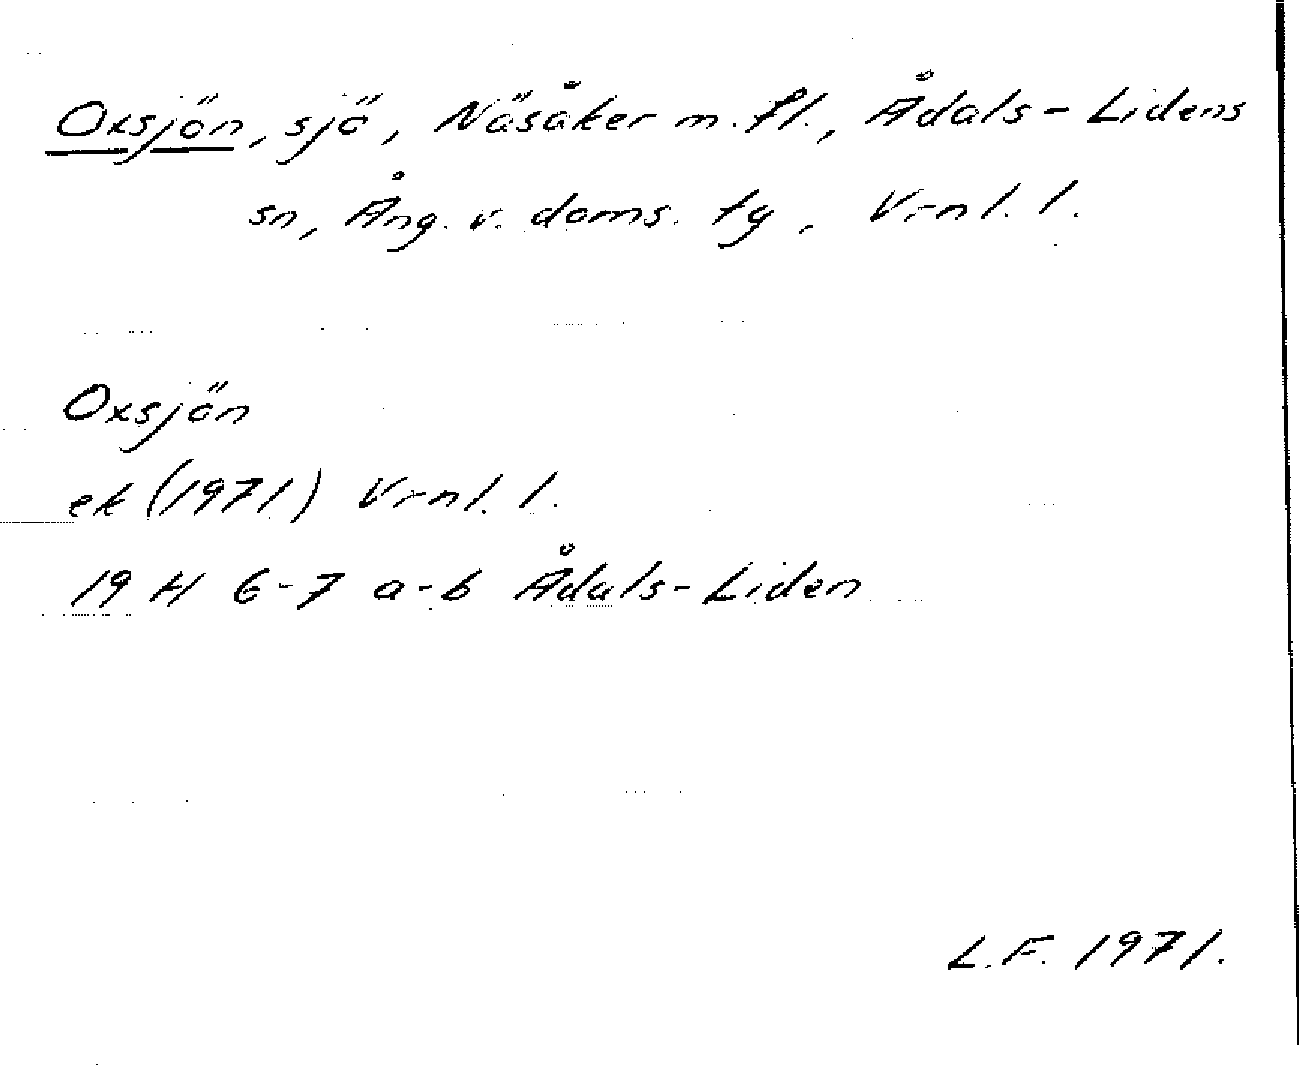 Oxsjön, sjö, Näsåker m.fl., Ådals-Lidens
sn, Ång. v. doms. ty, Vrnl. l.
Oxsjön
ek (1971) Vrnl. l.
19 H 6-7 a-b Ådals-Liden
L.F. 1971.